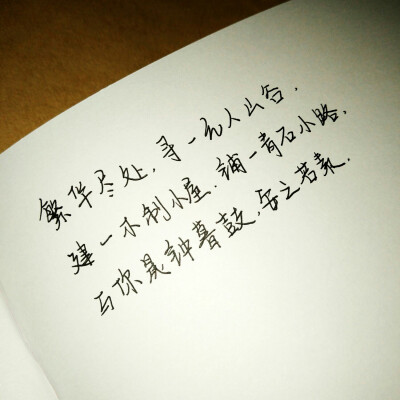 繁华尽处，寻一无人山谷，
建一木制小屋，铺一青石小路，
与你晨钟暮鼓，安之若素．